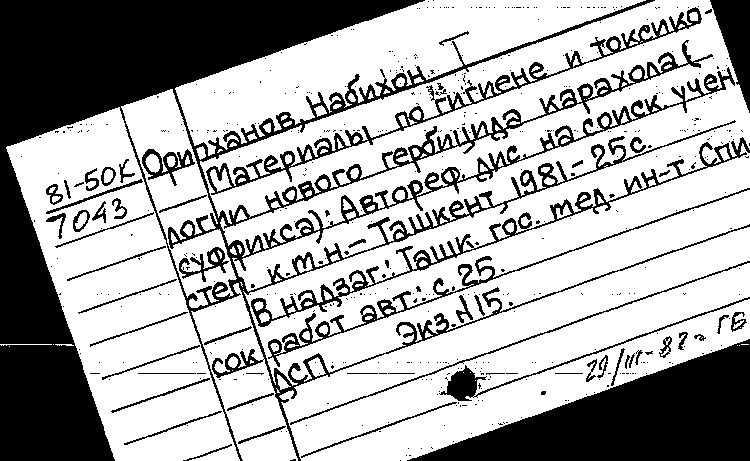 81-50К
7043
Орипханов, Набихон.
Материалы по гигиене и токсико-
логии нового гербицида карахола (
суффикса): Автореф. дис. на соиск. учен.
степ. к.м.н. – Ташкент, 1981. – 25 с.
В надзаг.: Ташк. гос. мед. ин-т. Спи
сок работ авт.: с. 25.
ДСП. Экз. N 15.
29/III-82г. ГБ